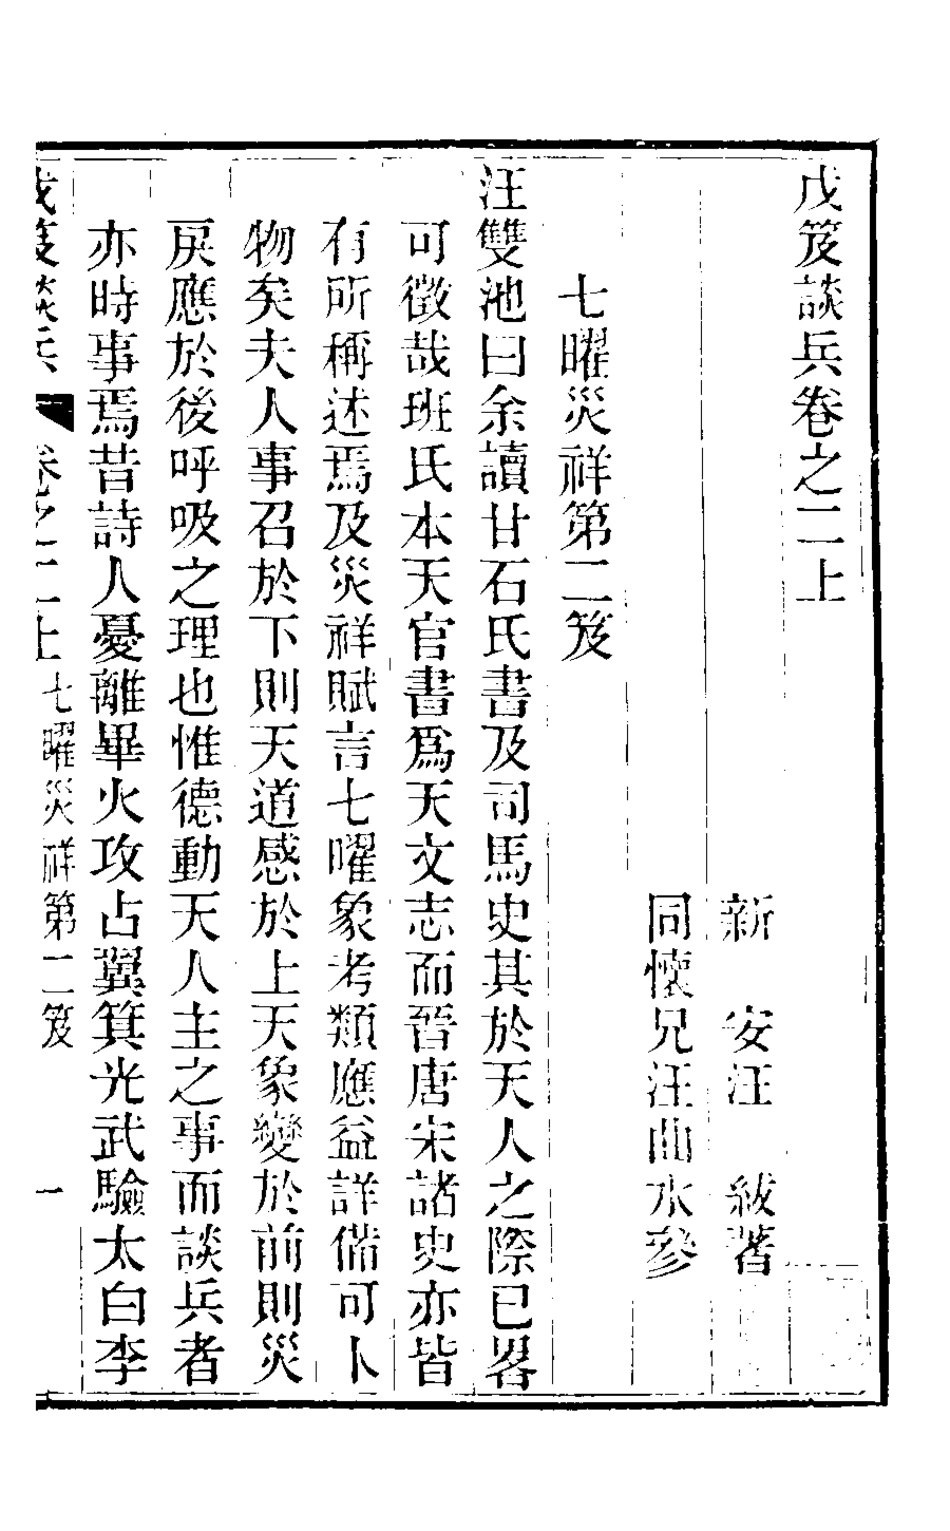 戊笈談兵卷之二上
新安汪紱著
同懷兄汪曲水參
七曜災祥第二笈
汪雙池曰余讀甘石氏書及司馬史其於天人之際已畧
可徵哉班氏本天官書爲天文志而晉唐宋諸史亦皆
有所稱述焉及災祥賦言七曜象考類應益詳備可卜
物矣夫人事召於下則天道感於上天象變於前則災
戾應於後呼吸之理也惟德動天人主之事而談兵者
亦時事焉昔詩人憂離畢火攻占翼箕光武驗太白李
戊笈談兵 卷之二上 七曜災祥第二笈 一